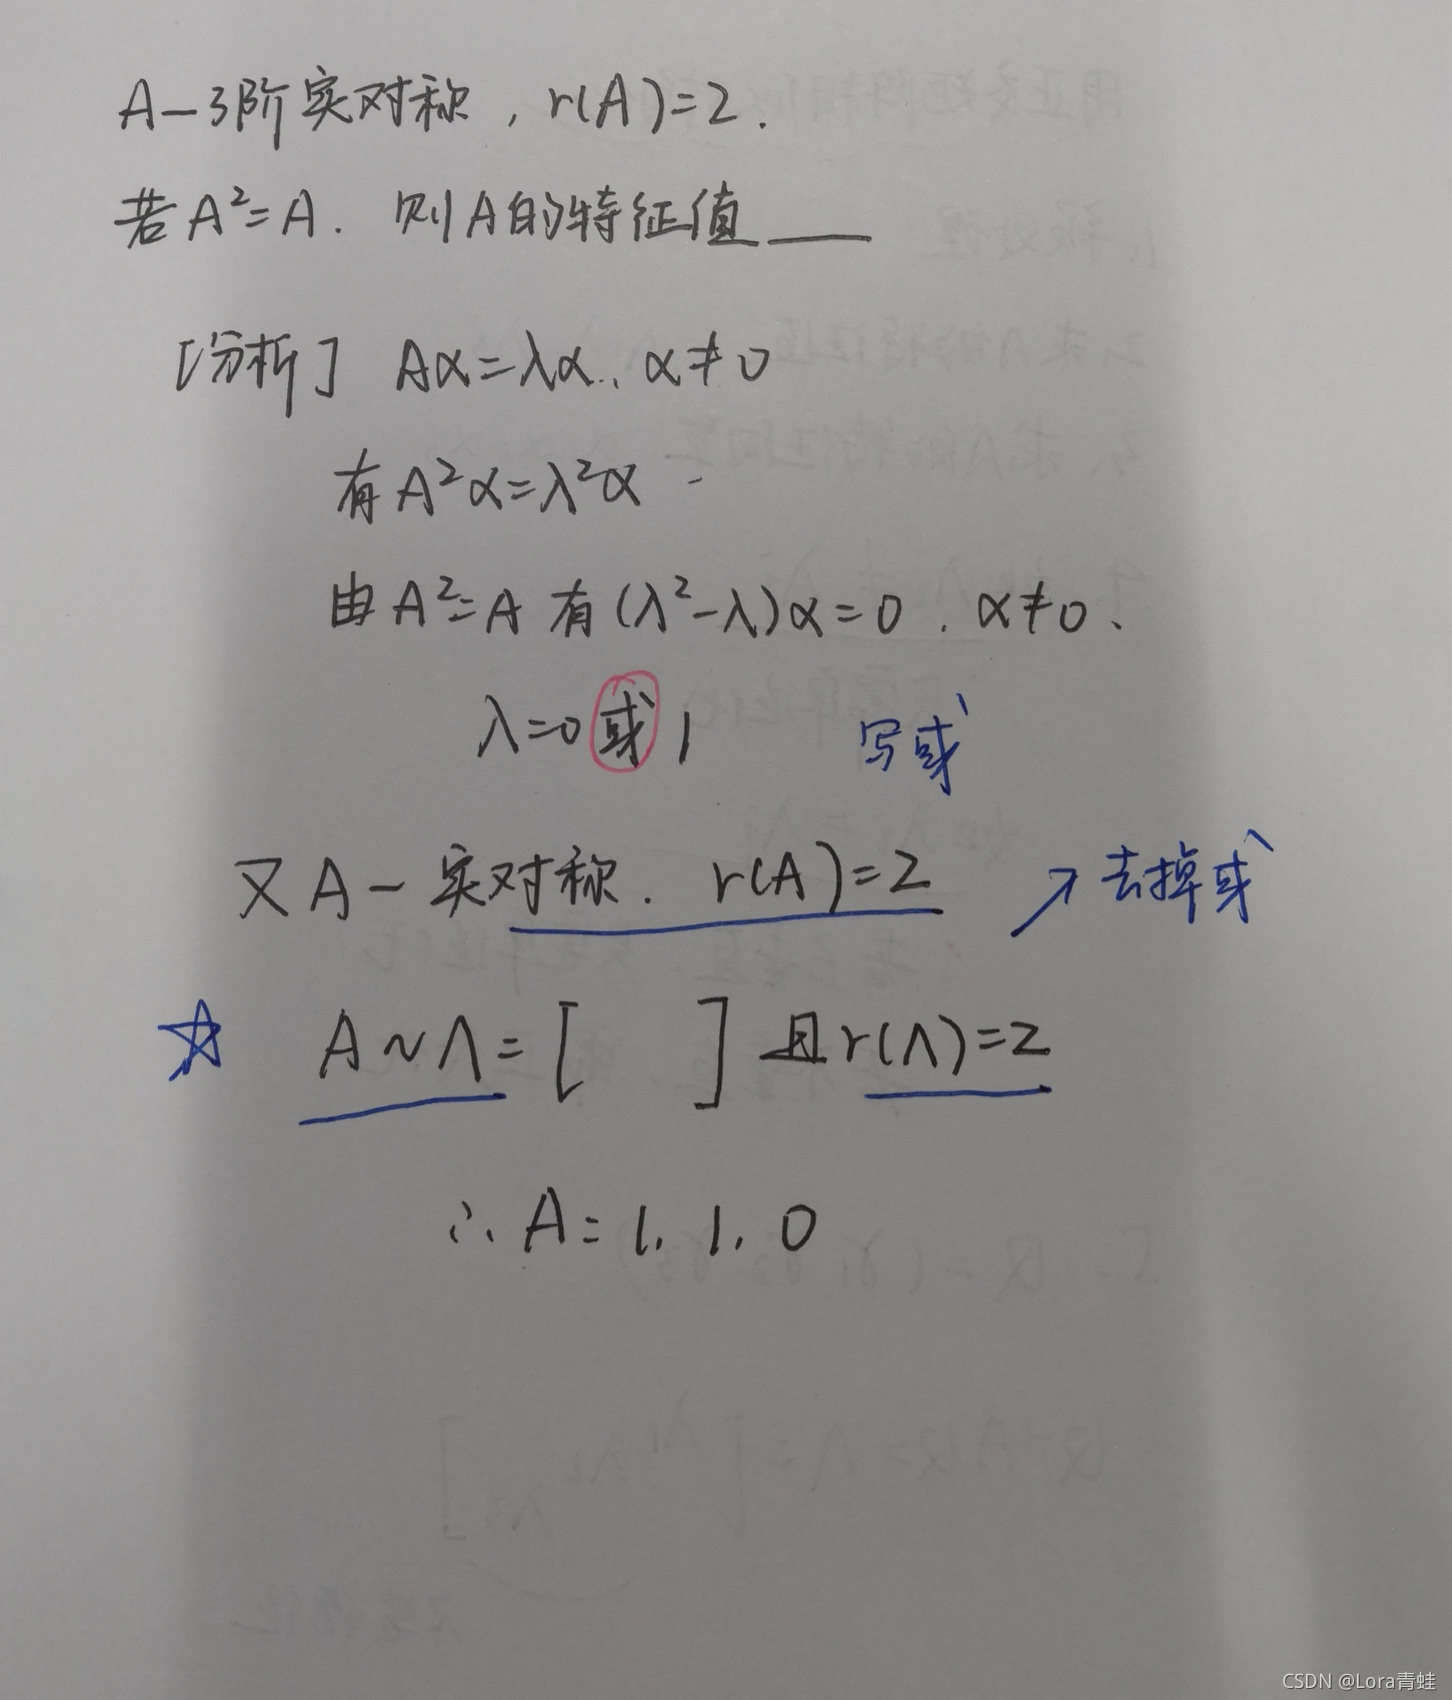 A-3阶实对称, r(A)=2.
若A²=A. 则A的特征值____
[分析] Aα=λα, α≠0
有A²α=λ²α
由A²=A 有(λ²-λ)α=0. α≠0.
λ=0或1 写或
又A-实对称. r(A)=2 ↗去掉或
☆ A~Λ=[ ] 且r(Λ)=2
∴ A=1. 1. 0
CSDN @Lora青蛙